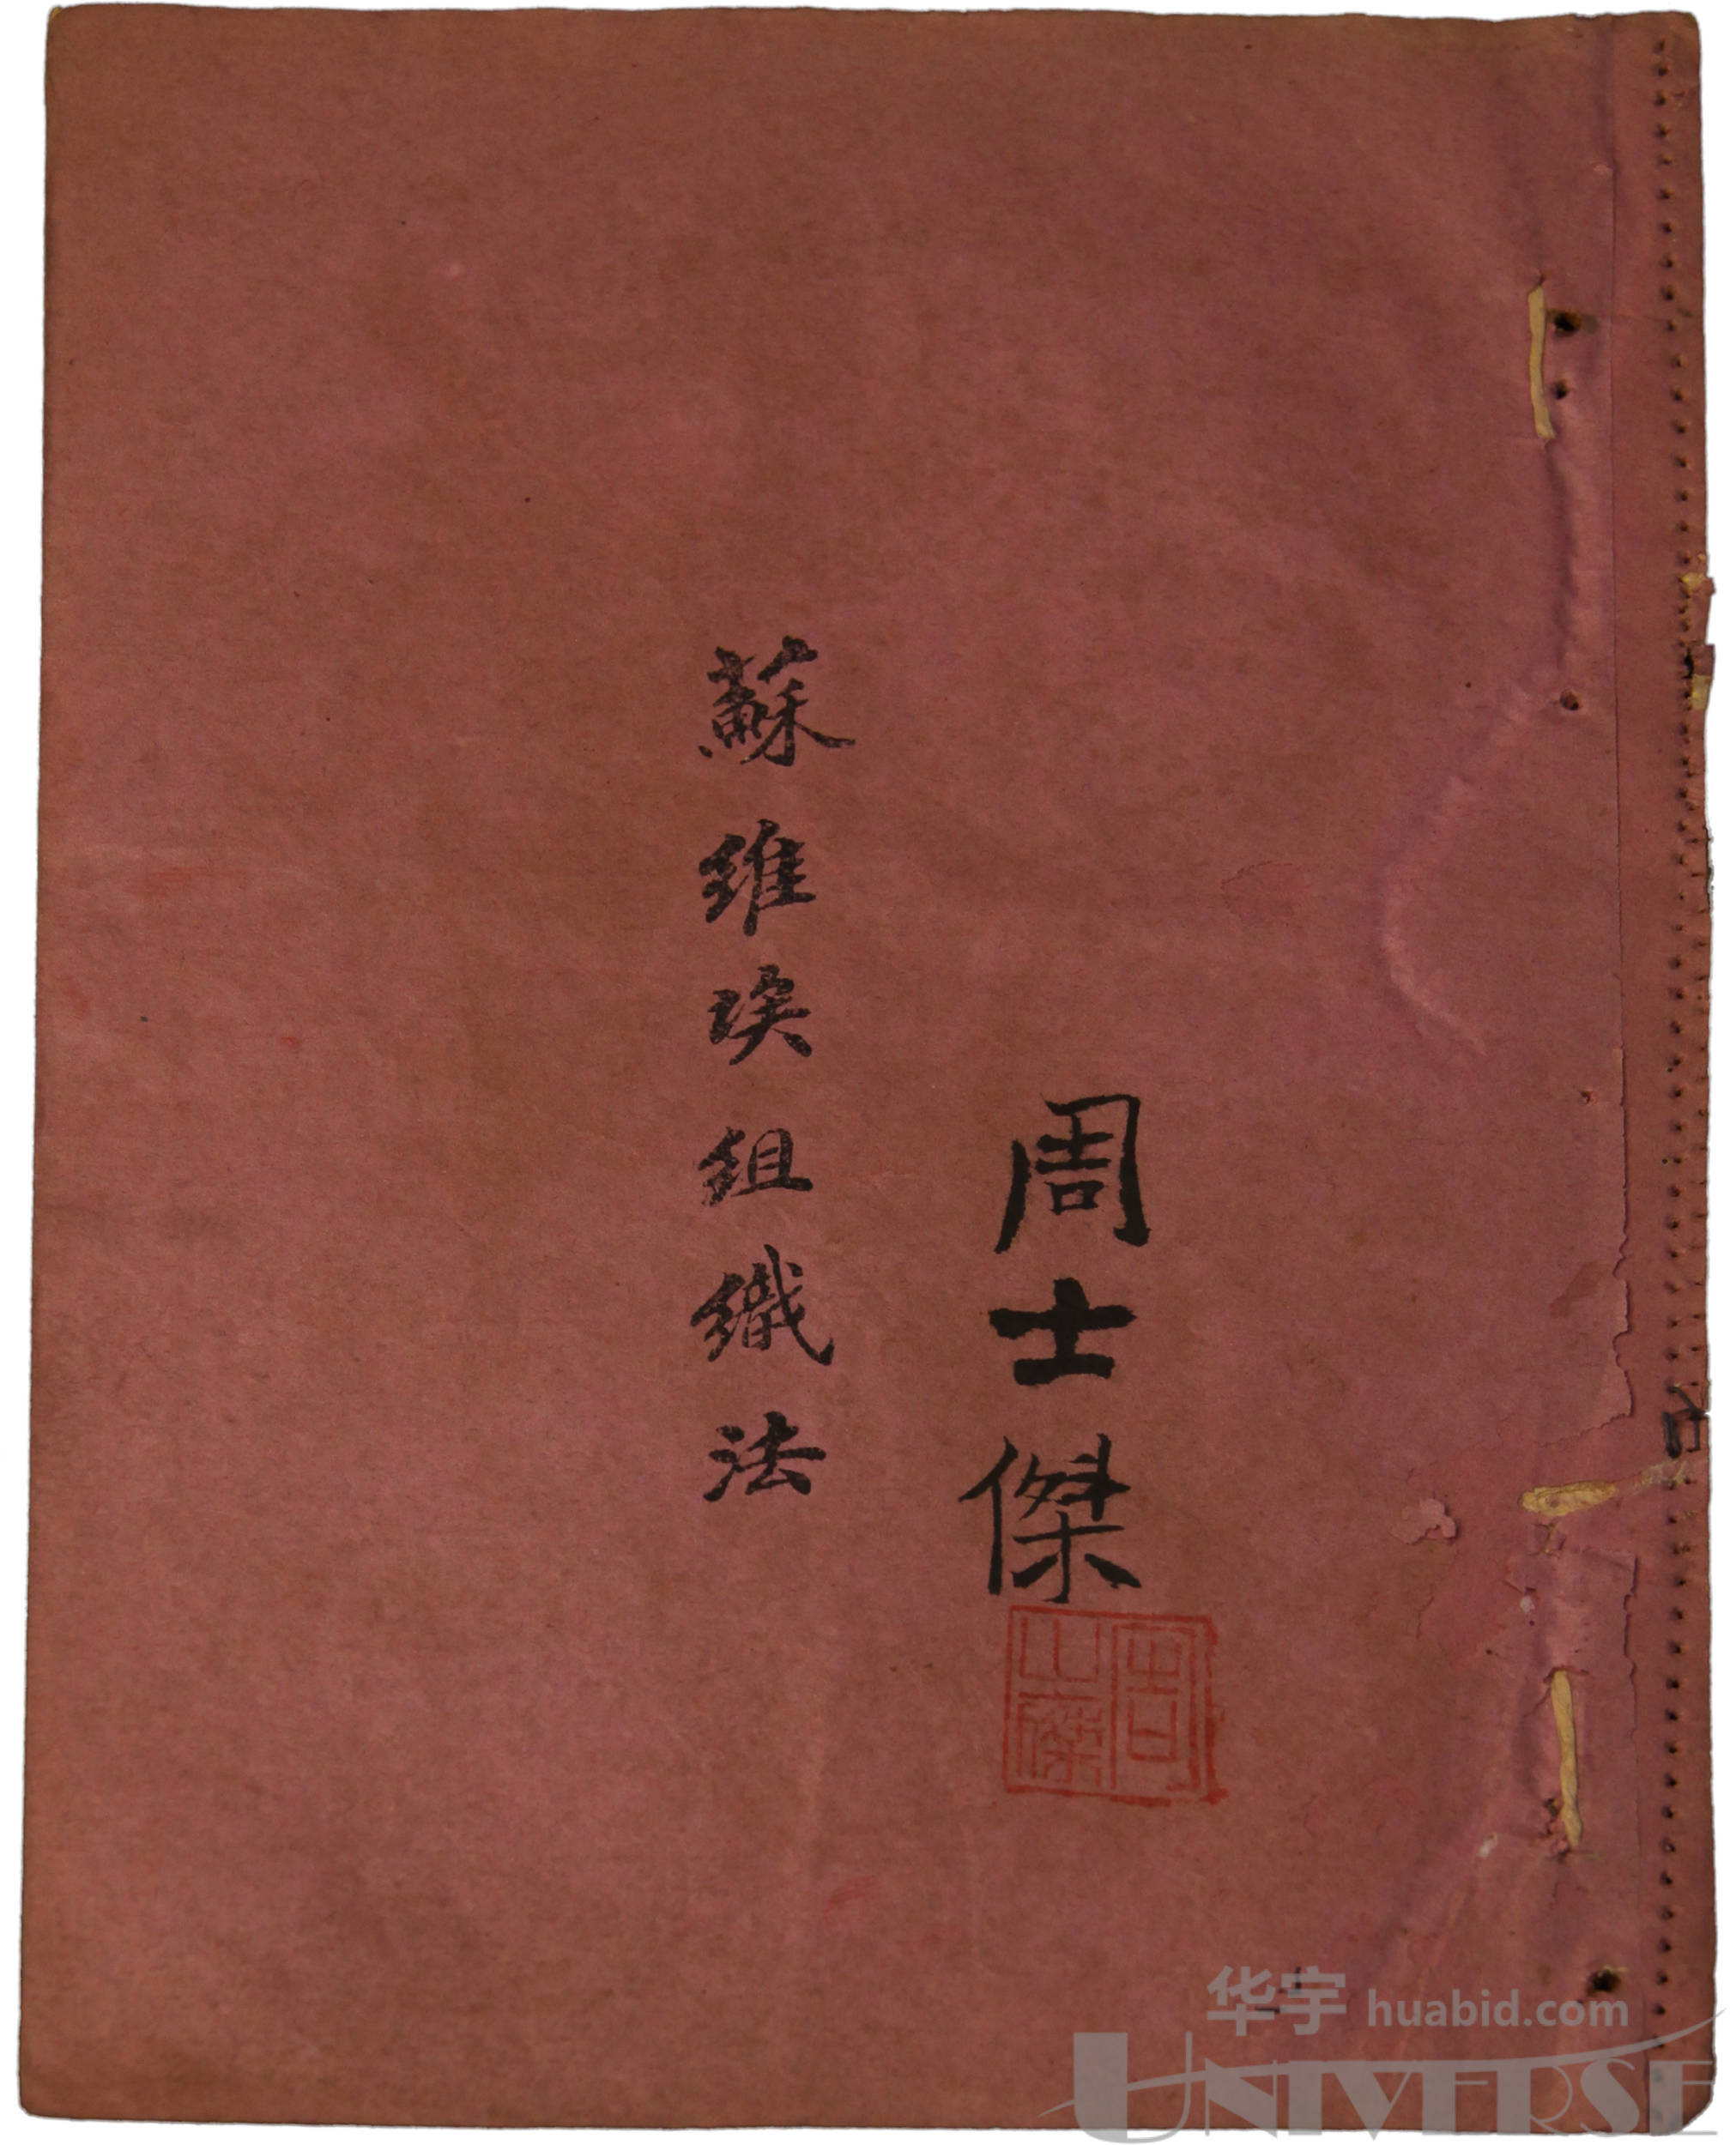 周士傑
蘇維埃組織法
周士傑
华宇 huabid.com
UNIVERSE